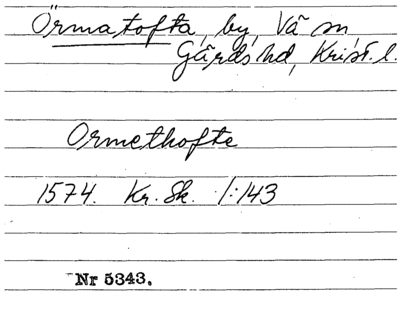 Örmatofta, by, Vå sn,
Gärds hd, Krist. l.
Ormethofte
1574. Kr. Sk. 1:143
Nr 5343.